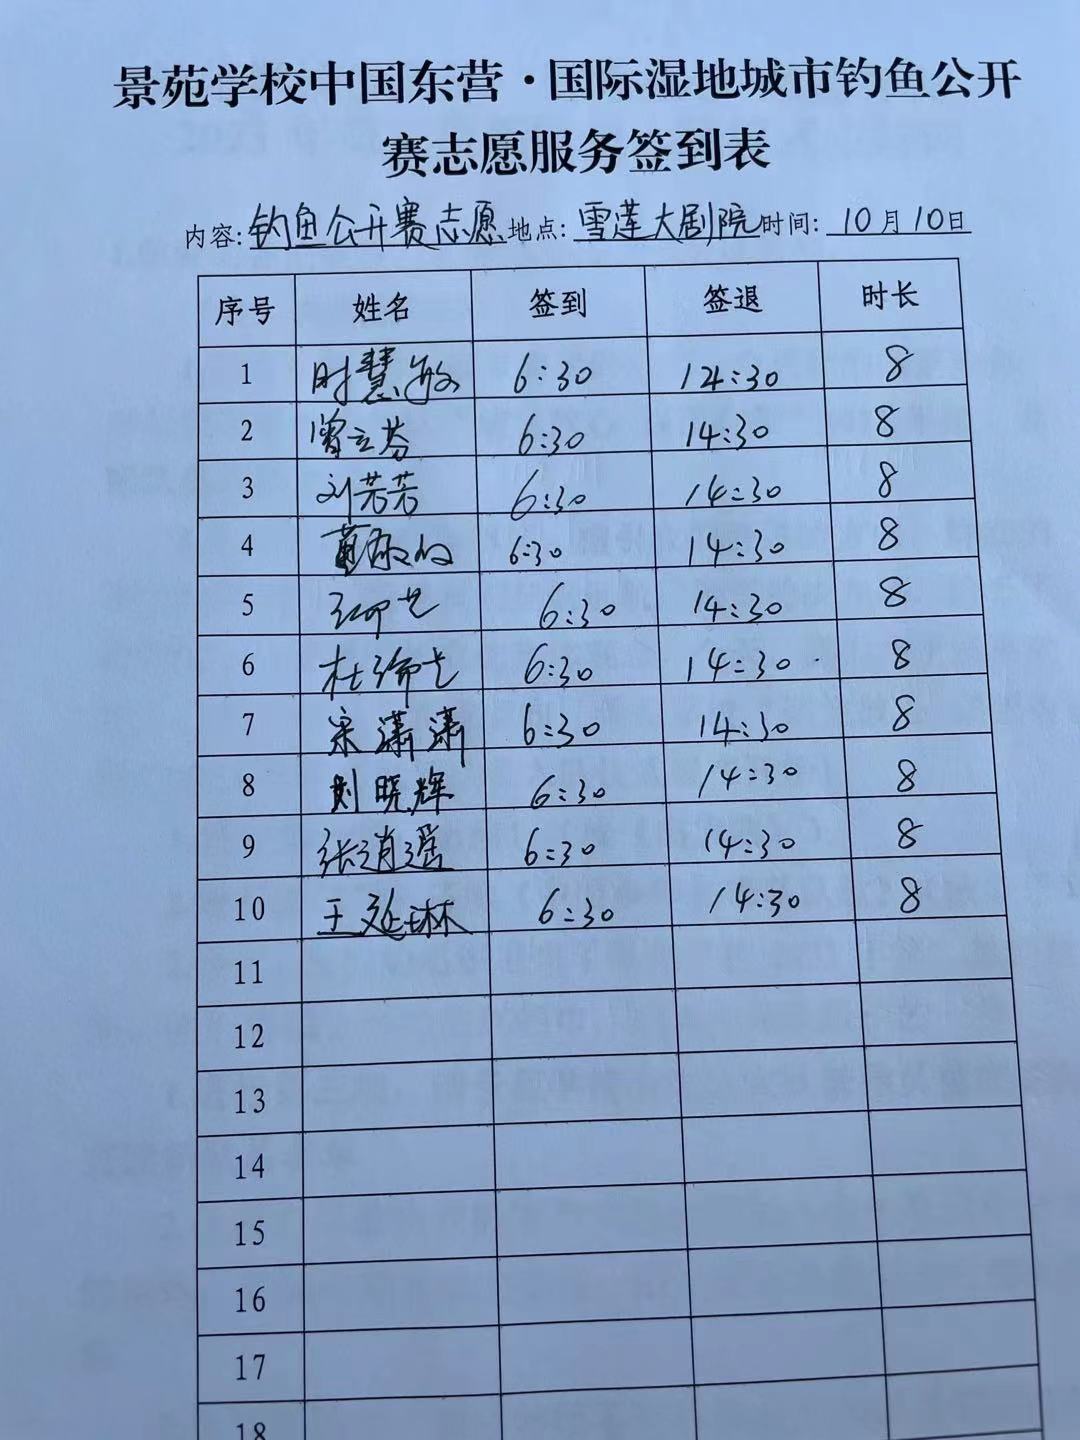 景苑学校中国东营·国际湿地城市钓鱼公开
赛志愿服务签到表
内容: 钓鱼公开赛志愿 地点: 雪莲大剧院 时间: 10月10日
序号 姓名 签到 签退 时长
1 时慧敏 6:30 14:30 8
2 曾立芬 6:30 14:30 8
3 刘芳芳 6:30 14:30 8
4 6:30 14:30 8
5 6:30 14:30 8
6 6:30 14:30 8
7 宋潇潇 6:30 14:30 8
8 刘晓辉 6:30 14:30 8
9 张逍遥 6:30 14:30 8
10 王延琳 6:30 14:30 8
11
12
13
14
15
16
17
18